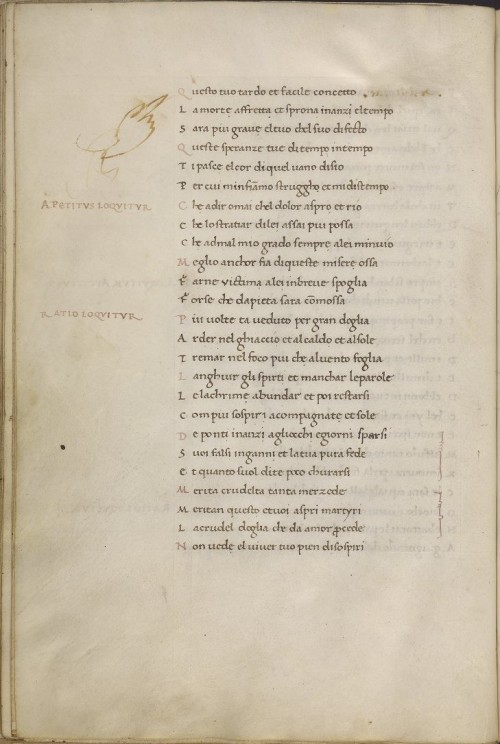 Questo tuo tardo et facile concetto
La morte affretta et sprona inanzi el tempo
Sara piu grave el tuo chel suo difetto
Queste speranze tue di tempo in tempo
Ti pasce el cor di quel uano disio
Per cui minfiamo struggho et mi distempo
APETITVS LOQVITVR
Che adir omai chel dolor aspro et rio
Che lo stratiar di lei assai piu possa
Che admal mio grado sempre alei minuio
Meglio anchor fia di queste misere ossa
Farne uictima alei inbreue spoglia
Forse che da pieta sara cōmossa
RATIO LOQVITVR
Piu uolte ta ueduto per gran doglia
Arder nel ghiaccio et al caldo et al sole
Tremar nel foco piu che al uento foglia
Languir gli spirti et manchar le parole
Le lachrime abundar et poi restarsi
Com piu sospiri acompagnate et sole
De ponti inanzi agliocchi egiorni sparsi
Suoi falsi inganni et la tua pura fede
Et quanto suol di te poco churarsi
Merita crudelta tanta merzede
Meritan questo e tuoi aspri martyri
La crudel doglia che da amor procede
Non uede el uiuer tuo pien di sospiri